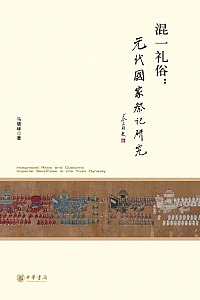 混一礼俗：
元代国家祭祀研究
马晓林 著
Integrated Rites and Customs:
Imperial Sacrifices in the Yuan Dynasty
中华书局